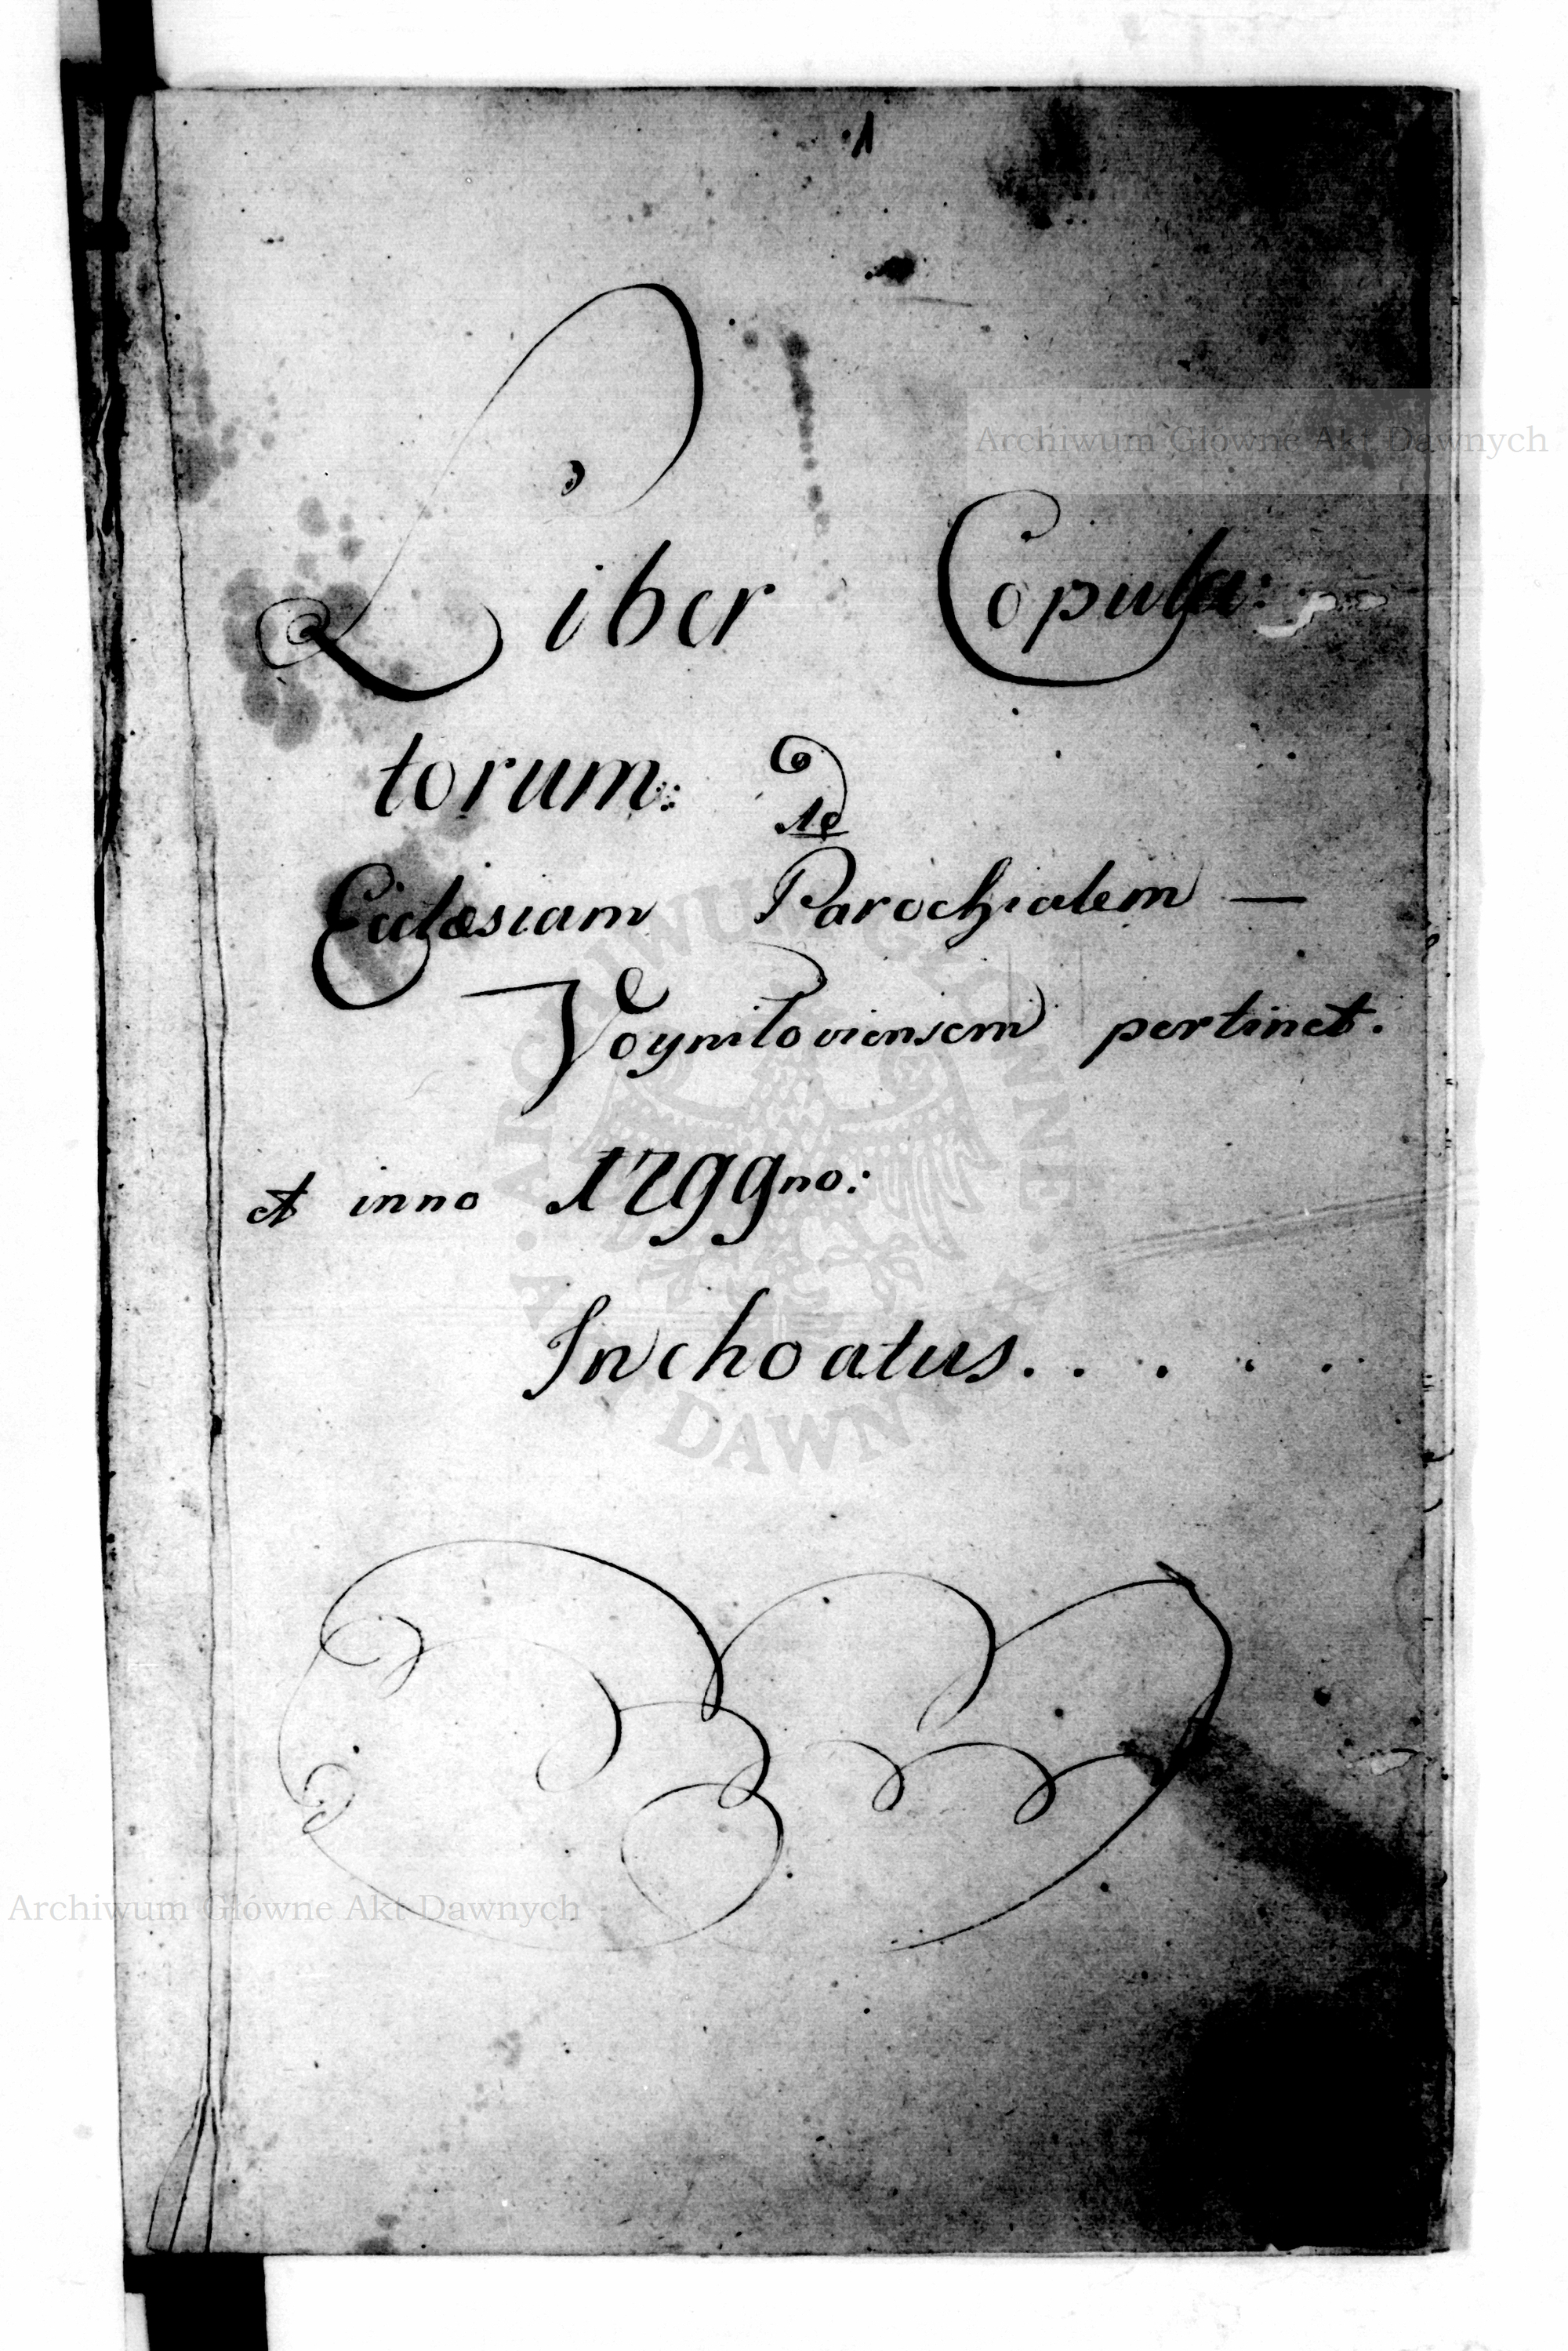 1
Archiwum Główne Akt Dawnych
Liber Copula:
torum:
Ecclæsiam Parochialem —
Voyniloviensem pertinet.
et inno 1799no:
Inchoatus. . . . . .
ARCHIWUM GŁÓWNE AKT DAWNYCH
Archiwum Główne Akt Dawnych